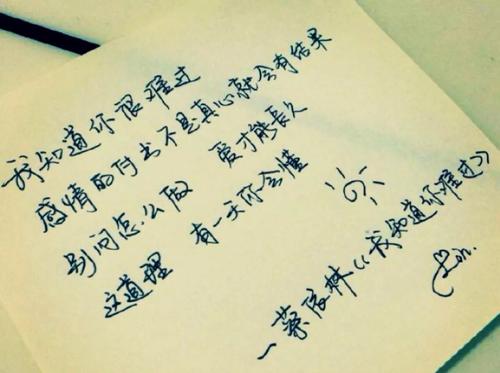 我知道你很难过
感情的付出不是真心就会有结果
别问怎么做 爱才能長久
这道理 有一天你会懂
—蔡依林《我知道你难过》